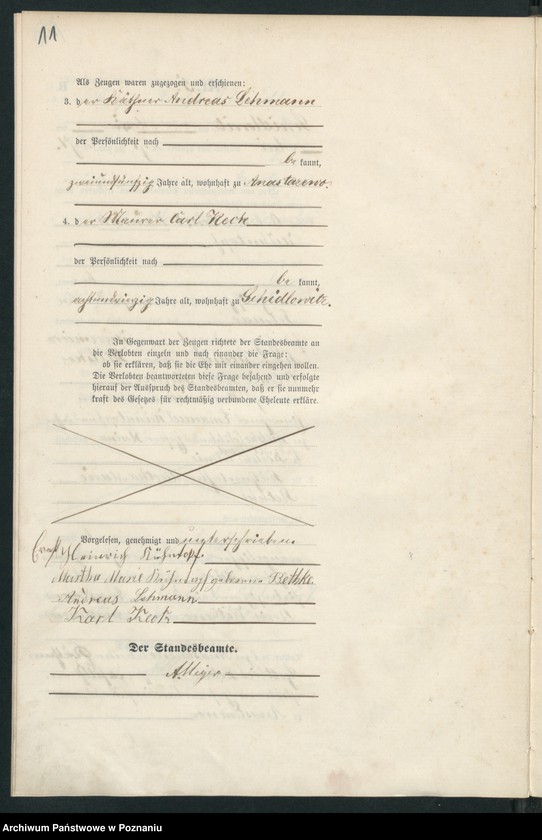 11
Als Zeugen waren zugezogen und erschienen:
3. der Käthner Andreas Lehmann
der Persönlichkeit nach
be kannt,
zweiundfünfzig Jahre alt, wohnhaft zu Anastazewo.
4. der Maurer Carl Keck
der Persönlichkeit nach
be kannt,
achtundvierzig Jahre alt, wohnhaft zu Schidlowitz.
In Gegenwart der Zeugen richtete der Standesbeamte an
die Verlobten einzeln und nach einander die Frage:
ob sie erklären, daß sie die Ehe mit einander eingehen wollen.
Die Verlobten beantworteten diese Frage bejahend und erfolgte
hierauf der Ausspruch des Standesbeamten, daß er sie nunmehr
kraft des Gesetzes für rechtmäßig verbundene Eheleute erkläre.
Vorgelesen, genehmigt und unterschrieben
Heinrich Kühntopf
Martha Marie Kühntopf geborene Bethke
Andreas Lehmann
Karl Keck
Der Standesbeamte.
Archiwum Państwowe w Poznaniu